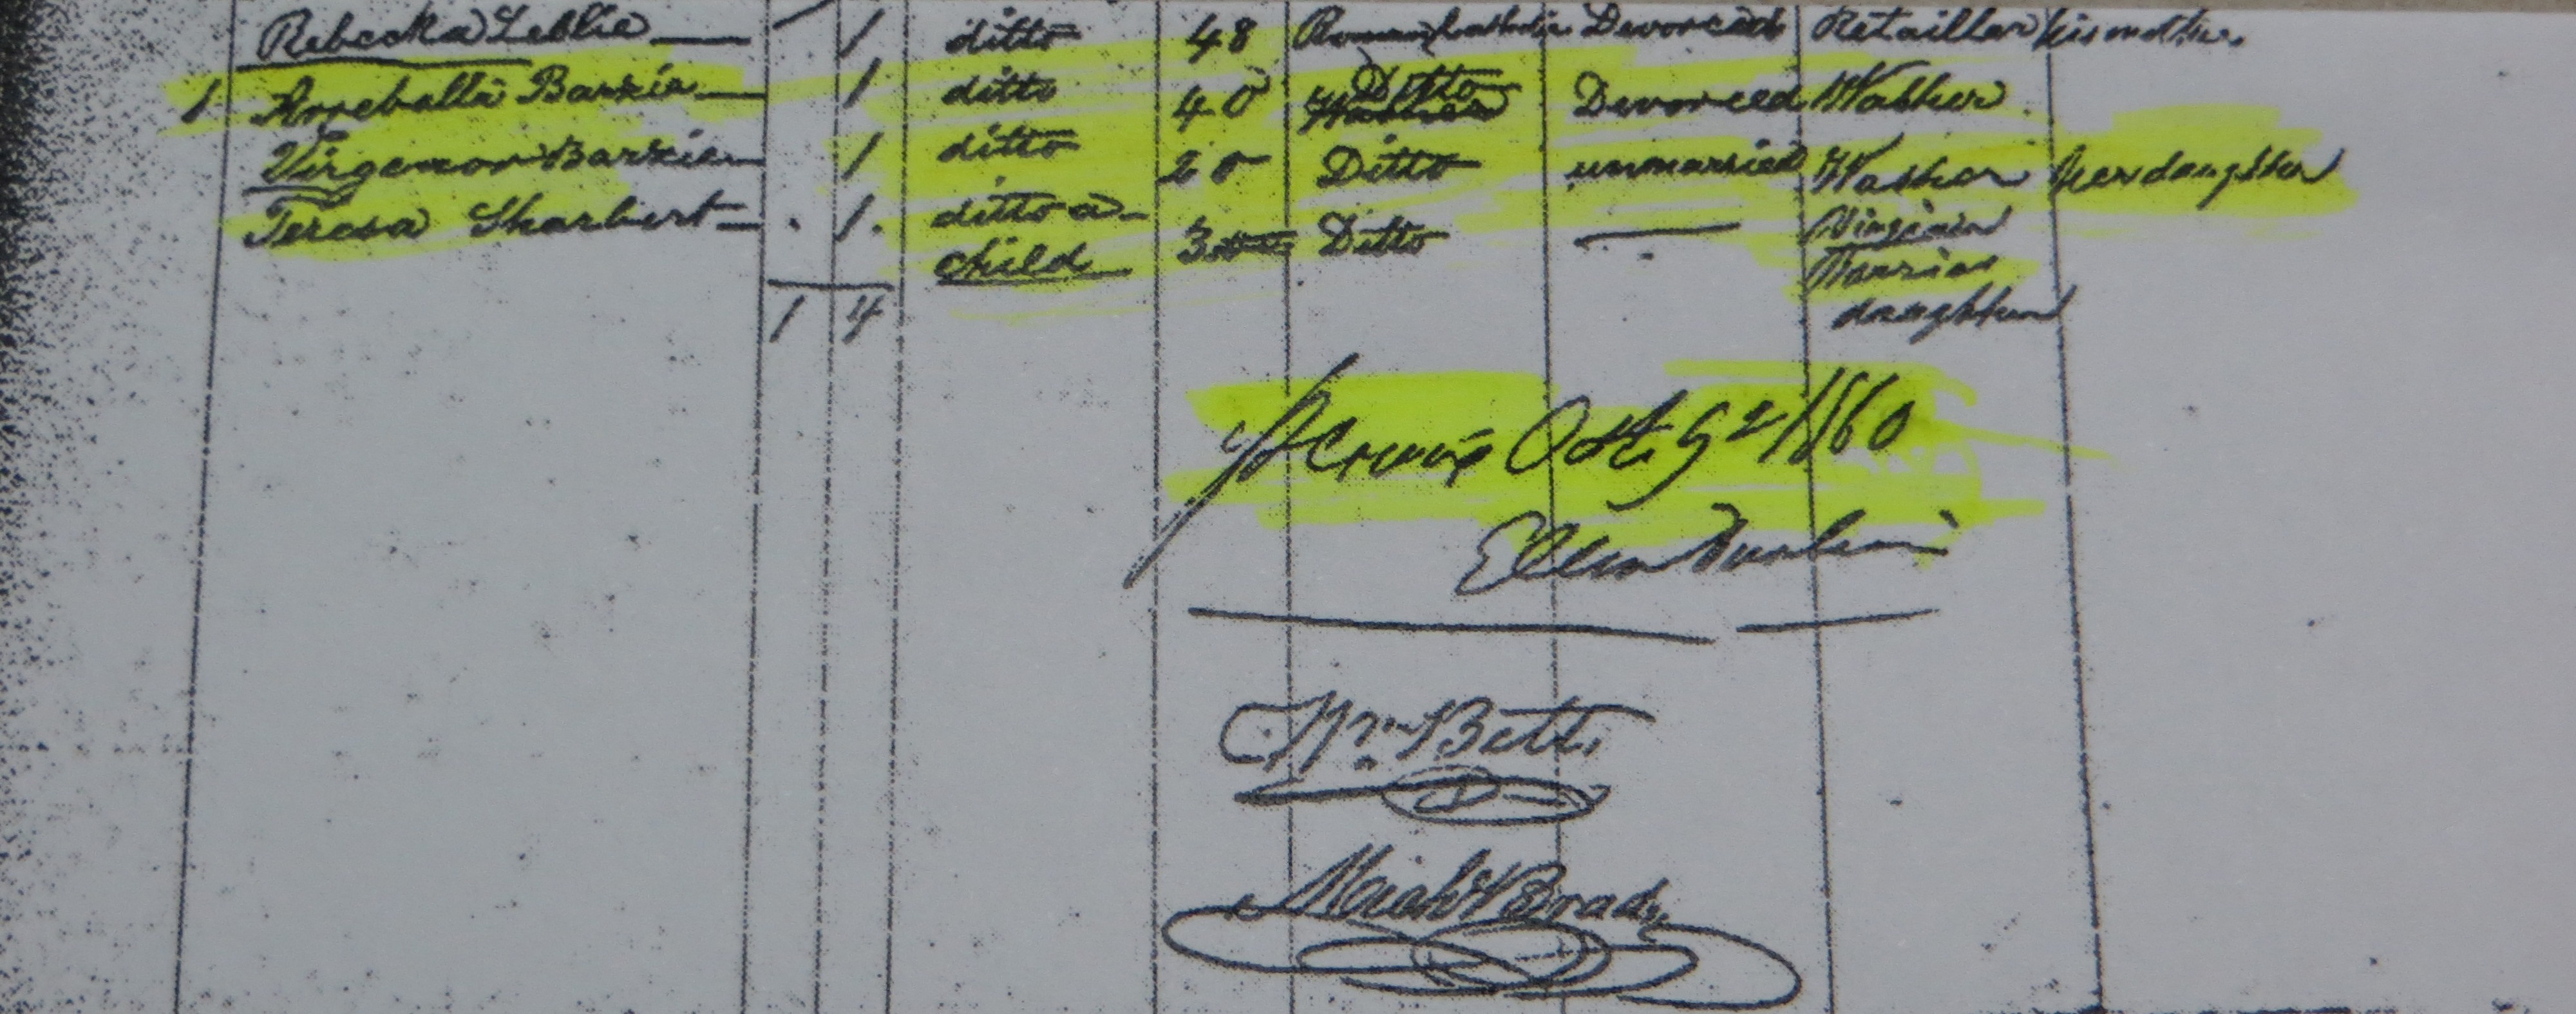 Rebecka Leblie — 1 ditto 48 Roman Catholic Devorced Retailler his mother
1 Arreballa Barzie — 1 ditto 40 Ditto Devorced Washer
Virgenor Barzie 1 ditto 20 Ditto unmarried Washer her daughter
Teresa Sharbert — 1 ditto a 3 Ditto — Virginia
child Barzies
daughter
1 4
St Croix Oct. 9 1860
Ellen
Wm Betts